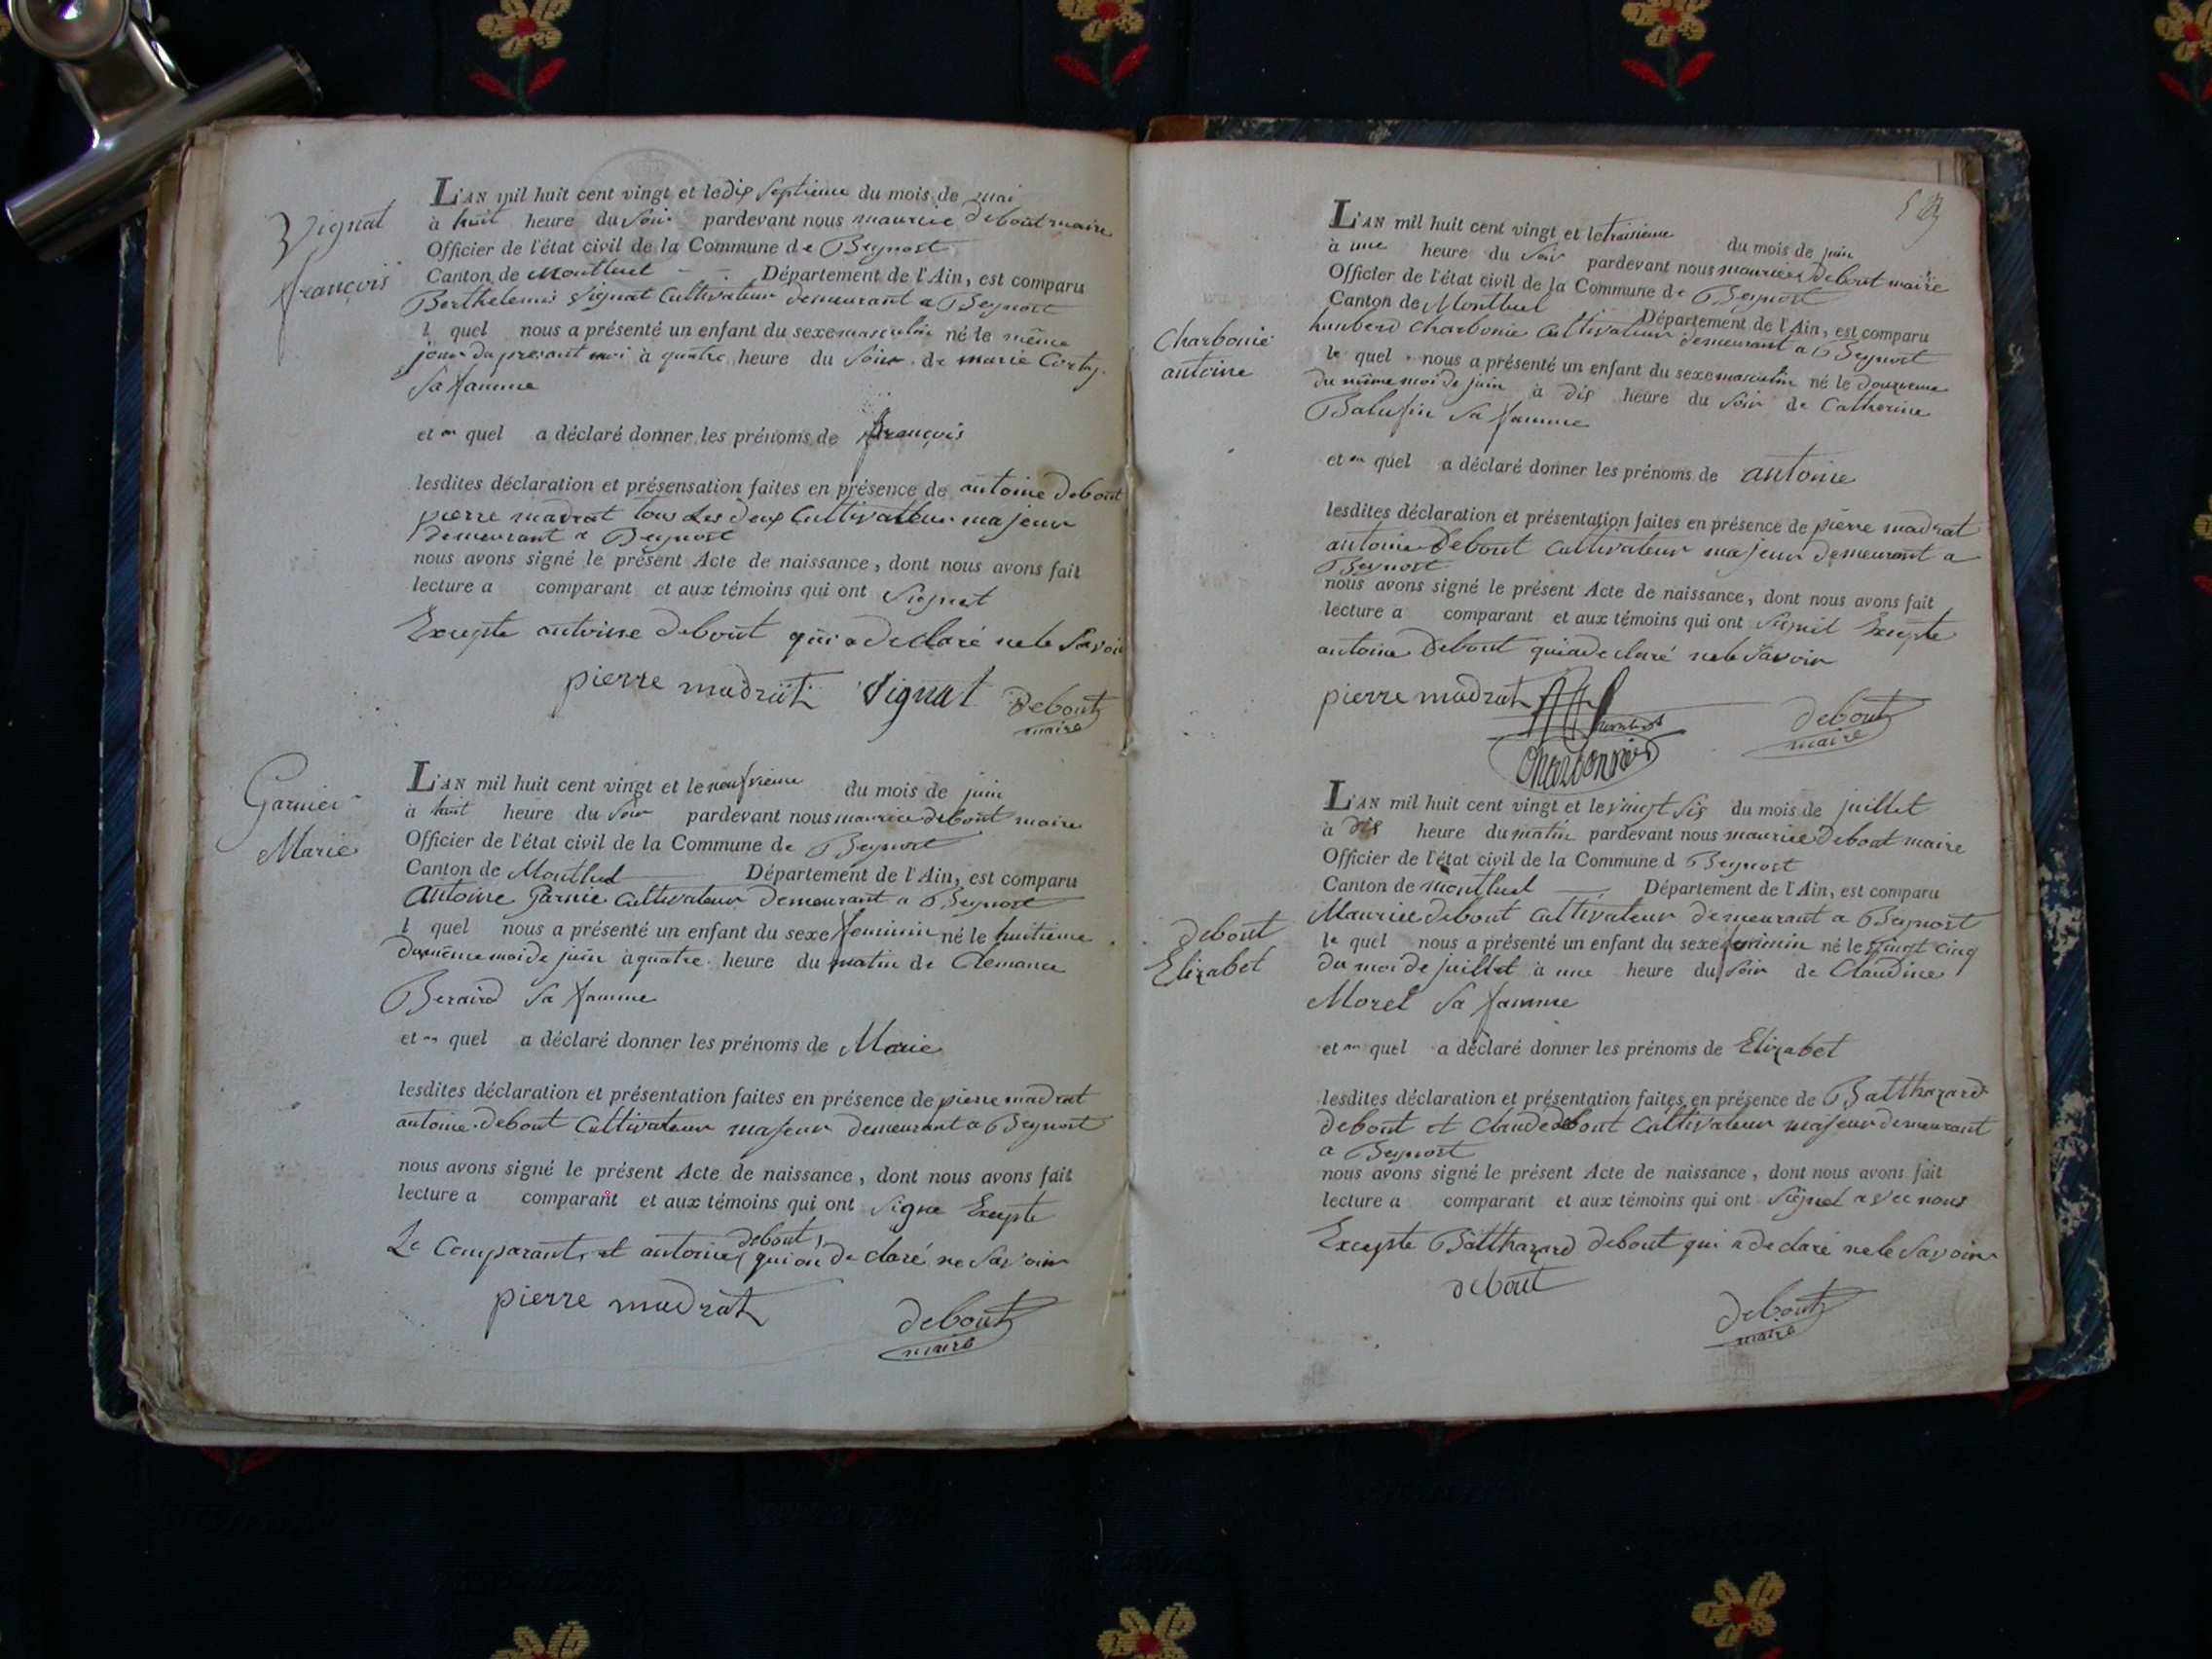 Vignat
françois
L'AN mil huit cent vingt et le dix septieme du mois de mai
à huit heure du Soir pardevant nous maurice debout maire
Officier de l'état civil de la Commune de Beynost
Canton de Montluel Département de l'Ain, est comparu
Berthelemi Vignat Cultivateur demeurant a Beynost
l quel nous a présenté un enfant du sexe masculin né le même
jour du present moi à quatre heure du Soir de marie
Sa famme
et quel a déclaré donner les prénoms de françois
lesdites déclaration et présensation faites en présence de antoine debout
pierre madrat tous Les deux Cultivateur majeur
demeurant a Beynost
nous avons signé le présent Acte de naissance, dont nous avons fait
lecture a comparant et aux témoins qui ont
Excepte antoine debout qui a declaré ne le Savoir
pierre madrat Vignat debout
maire
Garnier
Marie
L'AN mil huit cent vingt et le neufvieme du mois de juin
à huit heure du Soir pardevant nous maurice debout maire
Officier de l'état civil de la Commune de Beynost
Canton de Montluel Département de l'Ain, est comparu
Antoine Garnie Cultivateur demeurant a Beynost
l quel nous a présenté un enfant du sexe feminin né le huitieme
du même moi de juin à quatre heure du matin de Clemance
Beraird Sa famme
et quel a déclaré donner les prénoms de Marie
lesdites déclaration et présentation faites en présence de pierre madrat
antoine debout Cultivateur majeur demeurant a Beynost
nous avons signé le présent Acte de naissance, dont nous avons fait
lecture a comparant et aux témoins qui ont Signe Excepte
Le Comparant et antoine debout qui on declaré ne Savoir
pierre madrat debout
maire
Charbonie
antoine
L'AN mil huit cent vingt et le du mois de juin
à une heure du Soir pardevant nous maurice debout maire
Officier de l'état civil de la Commune de Beynost
Canton de Montluel Département de l'Ain, est comparu
humberd Charbonie Cultivateur demeurant a Beynost
le quel nous a présenté un enfant du sexe masculin né le douzieme
du même moi de juin à dis heure du Soir de Catherine
Balufin Sa famme
et quel a déclaré donner les prénoms de antoine
lesdites déclaration et présentation faites en présence de pierre madrat
antoine Debout Cultivateur majeur demeurant a
Beynost
nous avons signé le présent Acte de naissance, dont nous avons fait
lecture a comparant et aux témoins qui ont Excepte
antoine Debout qui a declaré ne le Savoir
pierre madrat debout
maire
Charbonnier
debout
Elizabet
L'AN mil huit cent vingt et le vingt sis du mois de juillet
à dis heure du matin pardevant nous maurice debout maire
Officier de l'état civil de la Commune d Beynost
Canton de montluel Département de l'Ain, est comparu
Maurice debout Cultivateur demeurant a Beynost
le quel nous a présenté un enfant du sexe feminin né le vingt cinq
du moi de juillet à une heure du Soir de Claudine
Morel Sa famme
et quel a déclaré donner les prénoms de Elizabet
lesdites déclaration et présentation faites en présence de Balthazard
debout et Claude debout Cultivateur majeur demeurant
a Beynost
nous avons signé le présent Acte de naissance, dont nous avons fait
lecture a comparant et aux témoins qui ont Signé avec nous
Excepte Balthazard debout qui a declaré ne le Savoir
debout
debout
maire